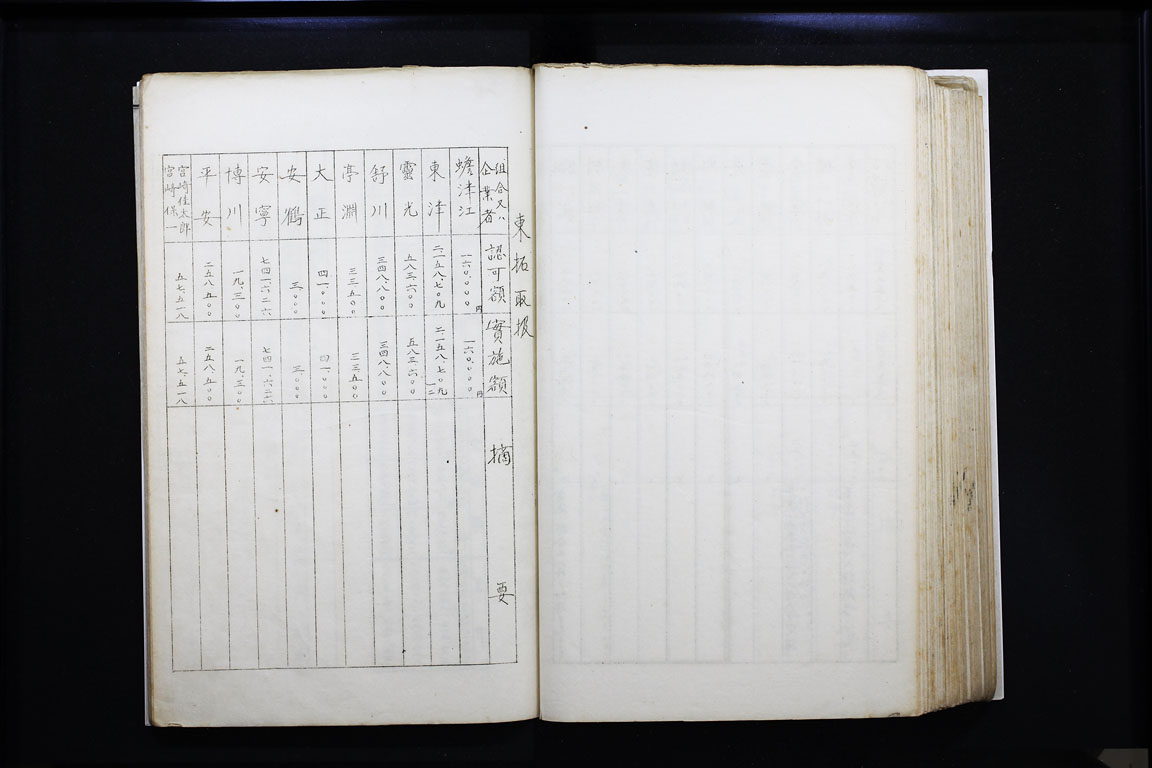 東拓取扱
組合又ハ企業者 認可額 實施額 摘要
蟾津江 一六〇、〇〇〇円 一六〇、〇〇〇円
東津 二、一五八、七〇九 二、一五八、七〇九
靈光 五八三、六〇〇 五八三、六〇〇
舒川 三四八、八〇〇 三四八、八〇〇
亭淵 三三、五〇〇 三三、五〇〇
大正 四一、〇〇〇 四一、〇〇〇
安鶴 三、〇〇〇 三、〇〇〇
安寧 七四一、六二六 七四一、六二六
博川 一九、三〇〇 一九、三〇〇
平安 二五八、五〇〇 二五八、五〇〇
宮崎佳太郎 宮崎保一 五七、五一八 五七、五一八